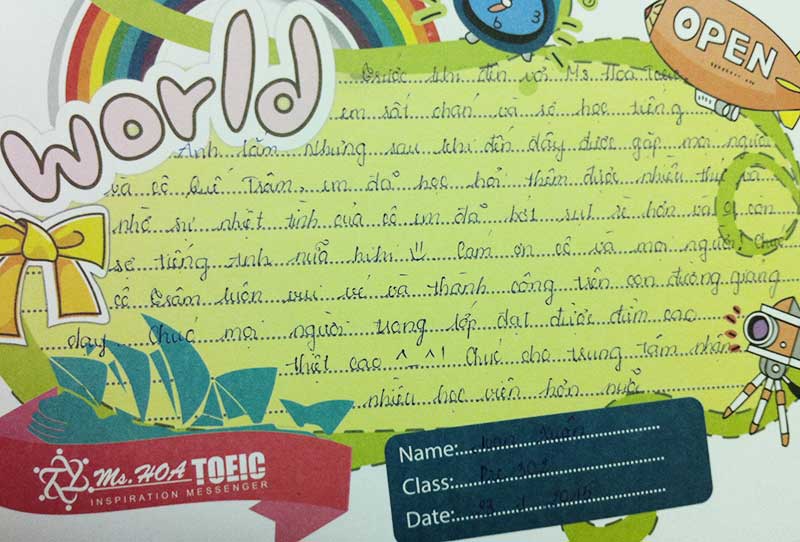 world
OPEN
Trước khi đến với Ms. Hoa Toeic,
em rất chán và sợ học tiếng
Anh lắm. Nhưng sau khi đến đây được gặp mọi người
và cô Quế Trâm, em đã học hỏi thêm được nhiều thứ và
nhờ sự nhiệt tình của cô em đã bớt sợ hơn
sợ tiếng Anh nữa hihi Cám ơn cô và mọi người! Chúc
cô Trâm luôn vui vẻ và thành công trên con đường giảng
dạy. Chúc mọi người trong lớp đạt được điểm cao
thật cao ^_^! Chúc cho trung tâm nhận
nhiều học viên hơn nữa
Name: Xuân
Class:
Date: 2015
Ms. HOA TOEIC
INSPIRATION MESSENGER